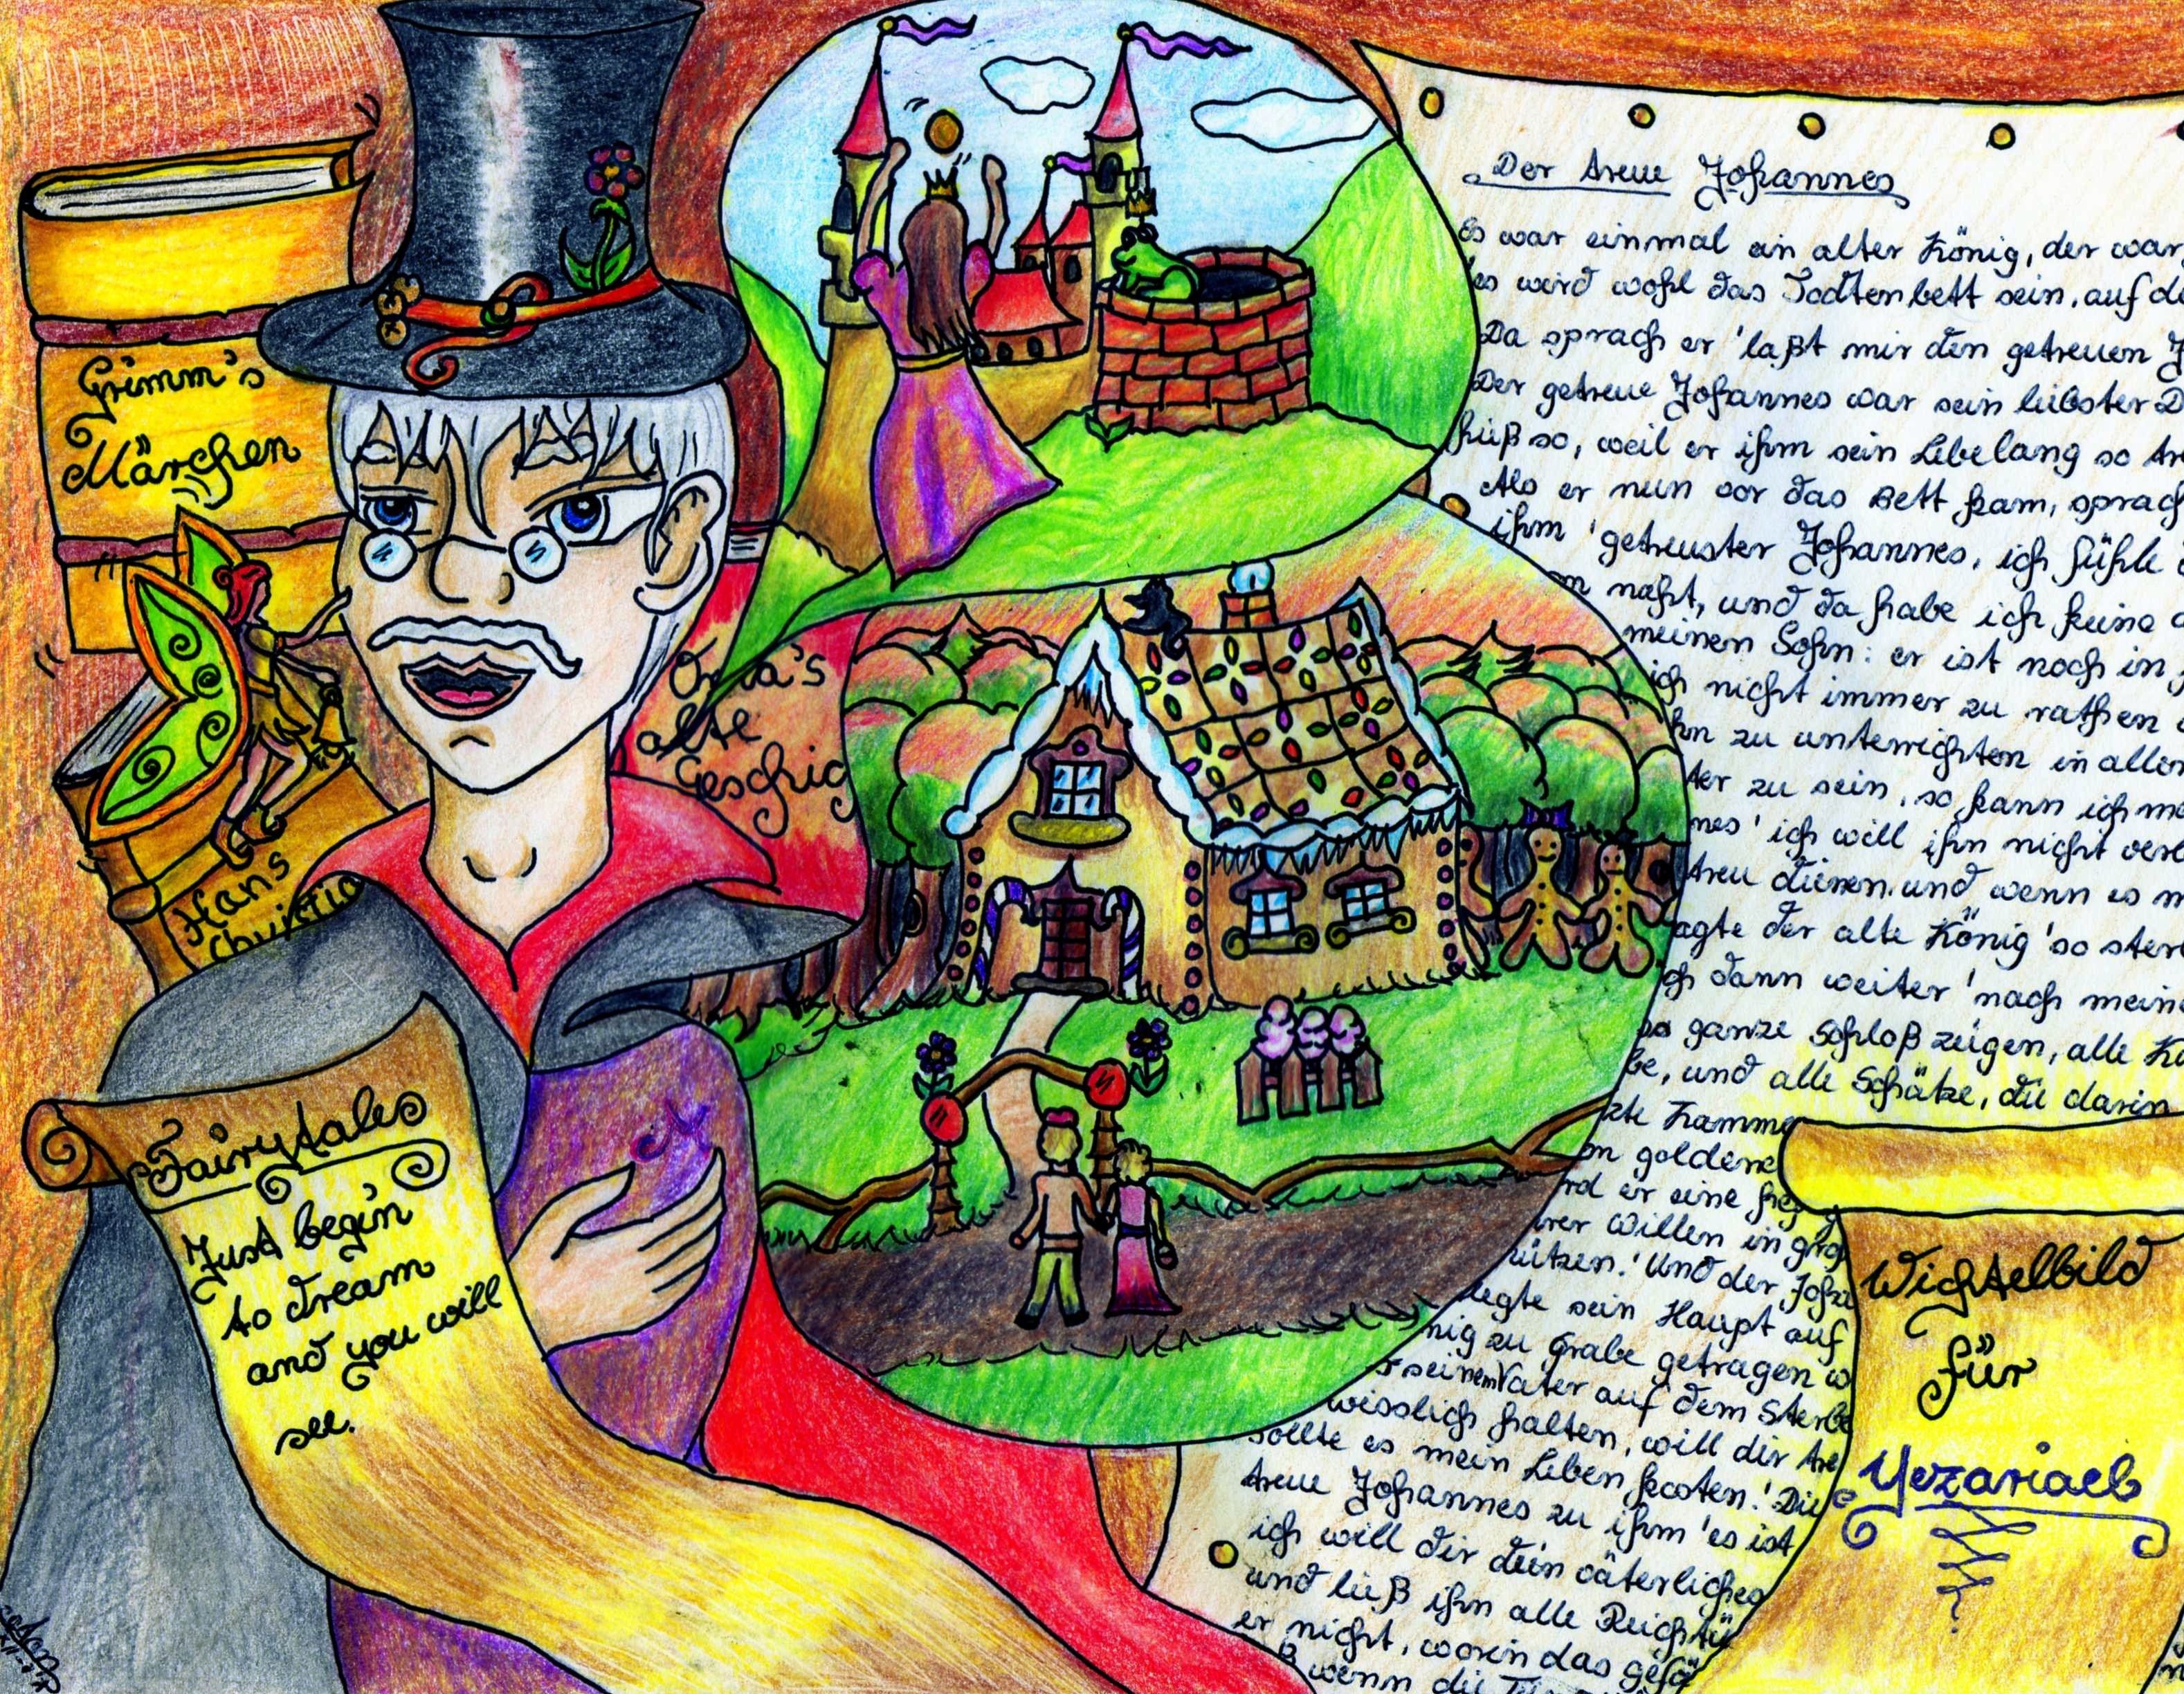 Grimm's
Märchen
Hans
Christia
Oma's
alte
Geschig
Fairytales
Just begin
to dream
and you will
see.
Der treue Johannes
Es war einmal ein alter König, der war
es wird wohl das Todtenbett sein, auf de
Da sprach er 'laßt mir den getreuen J
Der getreue Johannes war sein liebster D
hieß so, weil er ihm sein Lebelang so tre
Als er nun vor das Bett kam, sprach
ihm 'getreuster Johannes, ich fühle
naht, und da habe ich keine
meinen Sohn: er ist noch in
ich nicht immer zu rathen
hn zu unterrichten in allem
ter zu sein, so kann ich me
nes' ich will ihn nicht verl
treu dienen, und wenn es m
agte der alte König 'so ster
ch dann weiter 'nach mein
s ganze Schloß zeigen, alle Ka
be, und alle Schätze, die darin
zte Kamme
on goldene
rd er eine
hrer willen in
hützen.' Und der Joha
legte sein Haupt auf
nig zu Grabe getragen w
seinem Vater auf dem Sterbe
wisslich halten, will dir tre
sollte es mein Leben kosten.' Die
treue Johannes zu ihm 'es ist
ich will dir dein väterliches
und ließ ihn alle Reichtü
er nicht, worin das gefä
ß wenn die
Wichtelbild
für
Yezariael